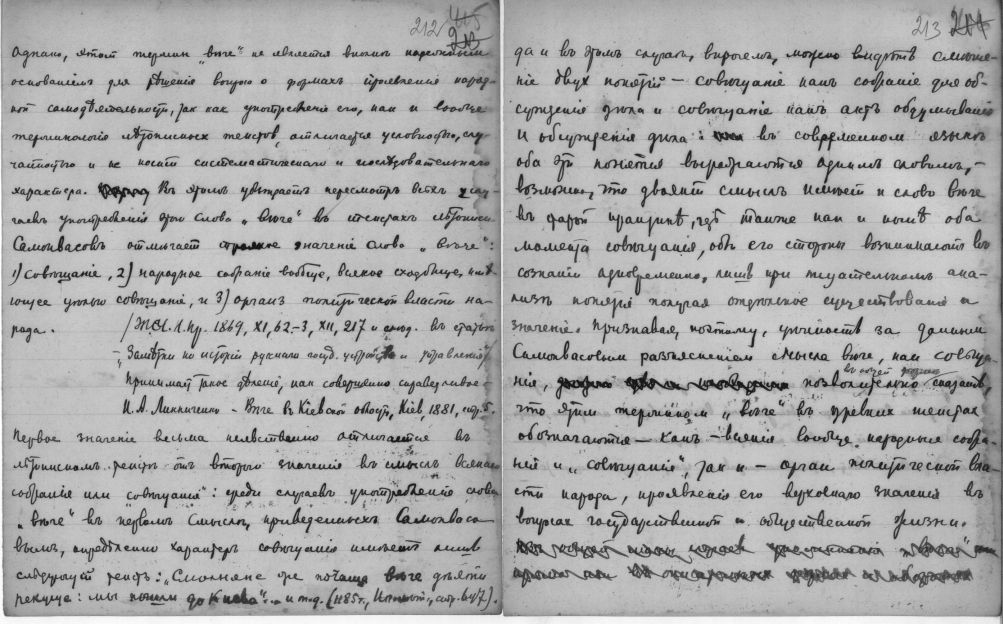 212
Однако, этот термин „вѣче“ не является вполнѣ надежным
основаніем для рѣшенія вопроса о формах проявленія народ-
ной самодѣятельности, так как употребленіе его, как и вообще
терминологія лѣтописных текстов, отличается условностью, слу-
чайностью и не носит систематическаго и послѣдовательнаго
характера. В этом убѣждает пересмотр всѣх слу-
чаев употребленія этого слова „вѣче“ в текстах лѣтописи
Самоквасовъ отмѣчает значеніе слова „вѣче“:
1) совѣщаніе, 2) народное собраніе вообще, всякое сходбище, имѣ-
ющее цѣлью совѣщаніе, и 3) орган политической власти на-
рода. /Ж. М. Н. Пр. 1869, XI, 62-3, XII, 217 и слѣд. в статьѣ
„Замѣтки по исторіи русскаго госуд. устройства и управленія“/
Принимает такое дѣленіе, как совершенно справедливое -
И. А. Линниченко - Вѣче в Кіевской области, Кіев 1881, стр. 5.
Первое значеніе весьма неявственно отличается в
лѣтописном текстѣ от второго значенія в смыслѣ всякаго
собранія или совѣщанія: среди случаев употребленія слова
„вѣче“ в первом смыслѣ, приведенных Самоквасо-
вым, опредѣленно характер совѣщанія имѣет лишь
слѣдующій текст: „Смолняне же почаша вѣче дѣяти
рекуще: мы пошли до Киева“... и т.д. (1185 г., Ипат., стр. 647).
213
да и в этом случаѣ, впрочем, можно видѣть смѣше-
ніе двух понятій - совѣщаніе как собраніе для об-
сужденія дѣла и совѣщаніе как акт обдумыванія
и обсужденія дѣла: в современном языкѣ
оба эти понятія выражаются одним словом, -
возможно, что двоякій смысл имѣет и слово вѣче
в фразѣ, гдѣ также как и нынѣ оба
момента совѣщанія, обѣ его стороны возникают в
сознаніи одновременно, лишь при тщательном ана-
лизѣ понятія получая отдѣльное существованіе и
значеніе. Признавая, поэтому, цѣнность за данным
Самоквасовым разъясненіем смысла вѣче, как совѣща-
нія, позволительно сказать,
что этим термином „вѣче“ в древних текстах
обозначаются - как - всякія вообще народныя собра-
нія и „совѣщанія“, так и - орган политической вла-
сти народа, проявленія его верховнаго значенія в
вопросах государственной и общественной жизни.